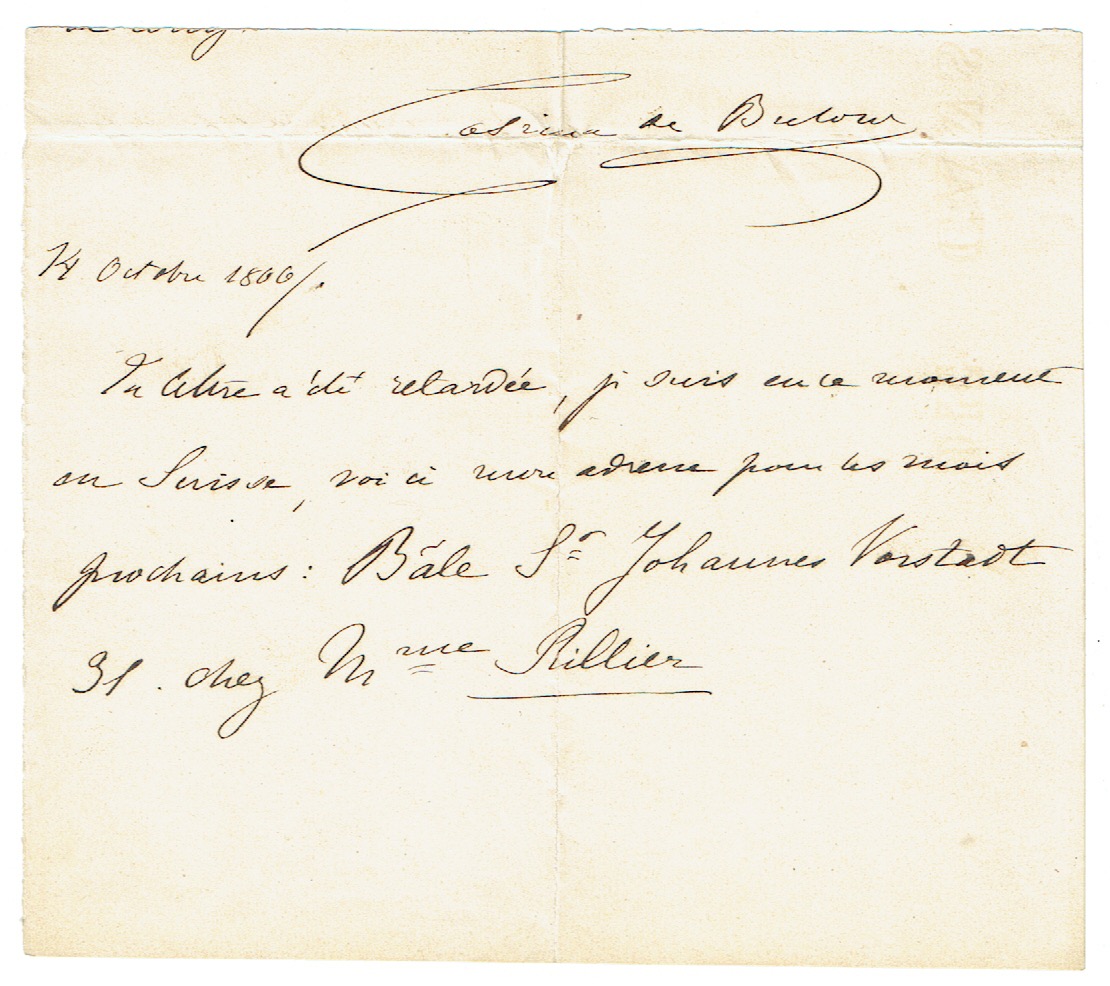 Cosima de Bulow
14 Octobre 1866/.
Ta lettre a été retardée, je suis en ce moment
en Suisse, voici mon adresse pour les mois
prochains: Bâle St Johannes Vorstadt
31. chez Mme Rillier